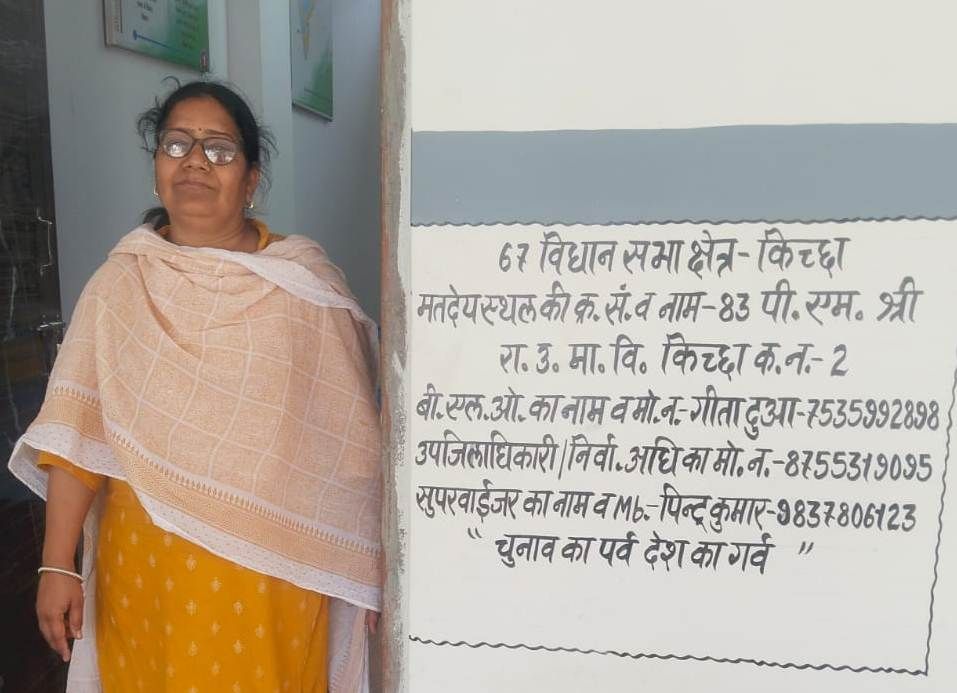 67 विधान सभा क्षेत्र - किच्छा
मतदेय स्थल की क्र. सं. व नाम - 83 पी. एम. श्री
रा. उ. मा. वि. किच्छा क. न. - 2
बी. एल. ओ. का नाम व मो. न. - गीता दुआ - 7535992898
उपजिलाधिकारी / निर्वा. अधि का मो. न. - 8755319095
सुपरवाईजर का नाम व Mb. - पिन्टू कुमार - 9837806123
" चुनाव का पर्व देश का गर्व "